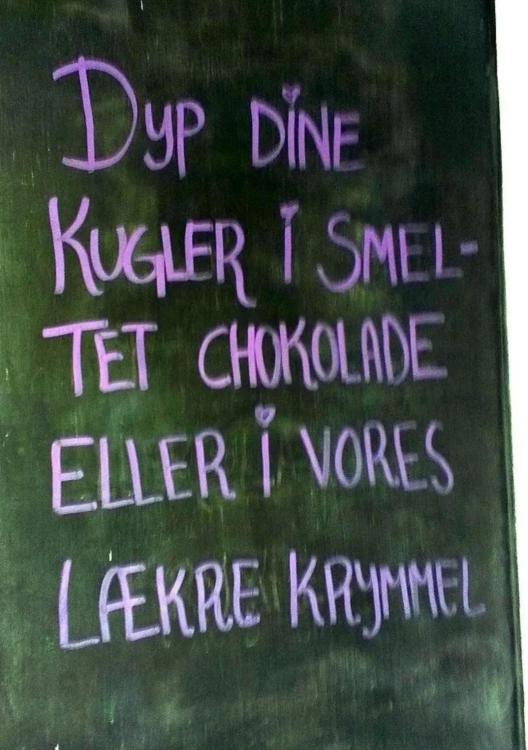 DYP DINE
KUGLER I SMEL-
TET CHOKOLADE
ELLER I VORES
LÆKRE KRYMMEL